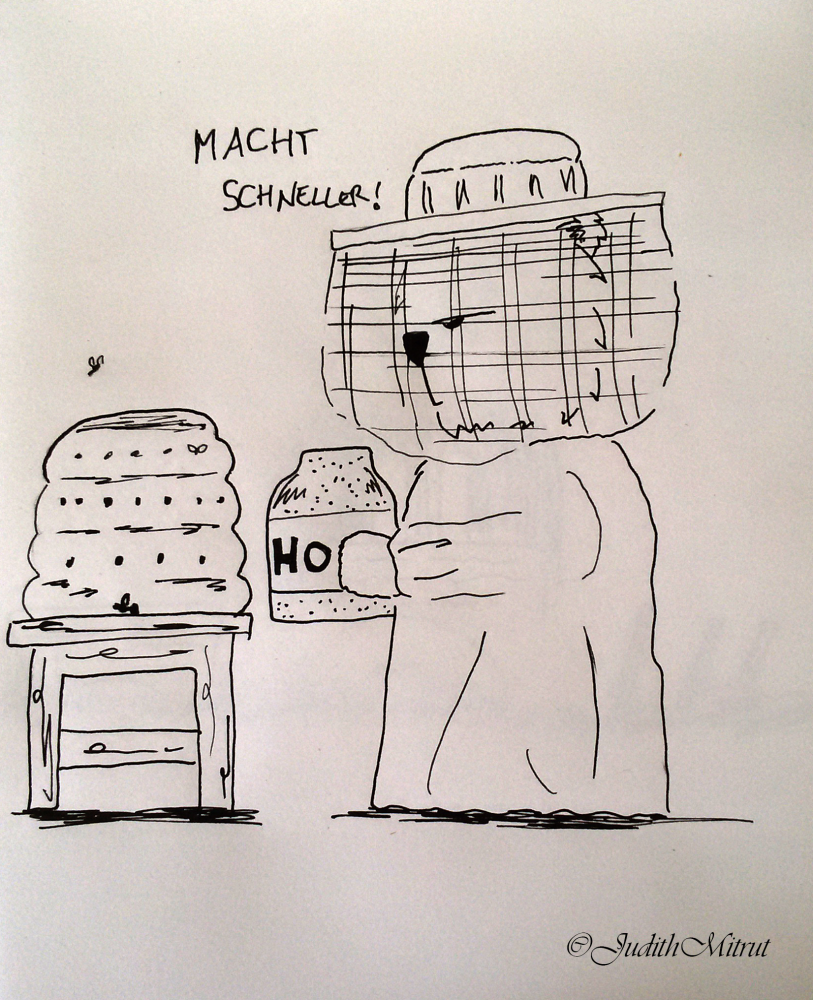 MACHT
SCHNELLER!
HO
©JudithMitrut